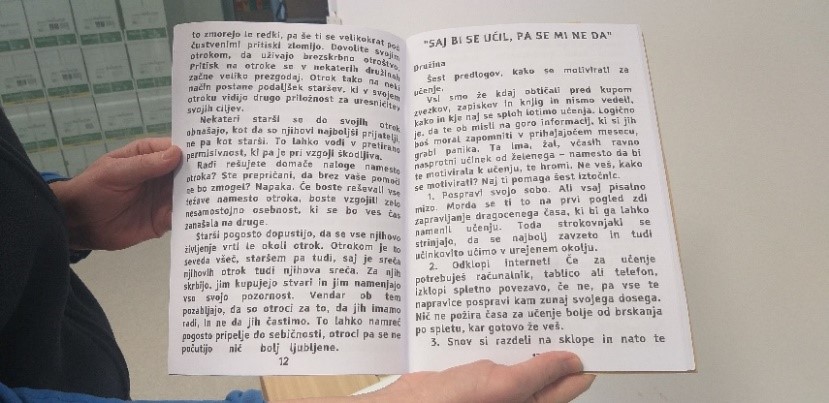 to zmorejo le redki, pa še ti se velikokrat pod
čustvenimi pritiski zlomijo. Dovolite svojim
otrokom, da uživajo brezskrbno otroštvo.
Pritisk na otroke se v nekaterih družinah
začne veliko prezgodaj. Otrok tako na neki
način postane podaljšek staršev, ki v svojem
otroku vidijo drugo priložnost za uresničitev
svojih ciljev.
Nekateri starši se do svojih otrok
obnašajo, kot da so njihovi najboljši prijatelji,
ne pa kot starši. To lahko vodi v pretirano
permisivnost, ki pa je pri vzgoji škodljiva.
Radi rešujete domače naloge namesto
otroka? Ste prepričani, da brez vaše pomoči
ne bo zmogel? Napaka. Če boste reševali vse
težave namesto otroka, boste vzgojili zelo
nesamostojno osebnost, ki se bo ves čas
zanašala na druge.
Starši pogosto dopustijo, da se vse njihovo
življenje vrti le okoli otrok. Otrokom je to
seveda všeč, staršem pa tudi, saj je sreča
njihovih otrok tudi njihova sreča. Za njih
skrbijo, jim kupujejo stvari in jim namenjajo
vso svojo pozornost. Vendar ob tem
pozabljajo, da so otroci za to, da jih imamo
radi, in ne da jih častimo. To lahko namreč
pogosto pripelje do sebičnosti, otroci pa se ne
počutijo nič bolj ljubljene.
12
"SAJ BI SE UČIL, PA SE MI NE DA"
Družina
Šest predlogov, kako se motivirati za
učenje.
Vsi smo že kdaj obtičali pred kupom
zvezkov, zapiskov in knjig in nismo vedeli,
kako in kje naj se sploh lotimo učenja. Logično
je, da te ob misli na goro informacij, ki si jih
boš moral zapomniti v prihajajočem mesecu,
grabi panika. Ta ima, žal, včasih ravno
nasprotni učinek od želenega – namesto da bi
te motivirala k učenju, te hromi. Ne veš, kako
se motivirati? Naj ti pomaga šest iztočnic.
1. Pospravi svojo sobo. Ali vsaj pisalno
mizo. Morda se ti to na prvi pogled zdi
zapravljanje dragocenega časa, ki bi ga lahko
namenil učenju. Toda strokovnjaki se
strinjajo, da se najbolj zavzeto in tudi
učinkovito učimo v urejenem okolju.
2. Odklopi internet! Če za učenje
potrebuješ računalnik, tablico ali telefon,
izklopi spletno povezavo, če ne, pa vse te
napravice pospravi kam zunaj svojega dosega.
Nič ne požira časa za učenje bolje od brskanja
po spletu, kar gotovo že veš.
3. Snov si razdeli na sklope in nato te